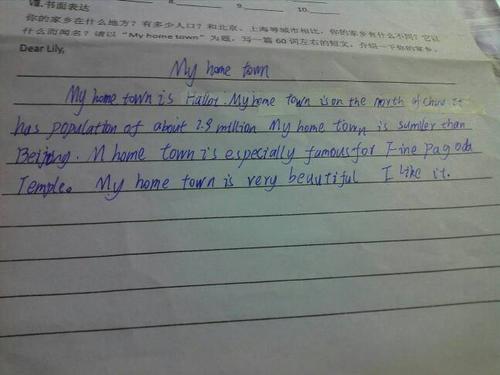 Ⅷ.书面表达 8. 9. 10.
你的家乡在什么地方？有多少人口？和北京、上海等城市相比，你的家乡有什么不同？它以
什么而闻名？请以“My home town”为题，写一篇60词左右的短文，介绍一下你的家乡。
Dear Lily,
My home town
My home town is Hailar. My home town is on the north of China. It
has population of about 2.9 million My home town is sumller than
Beijing. M home town is especially famous for Fine Pagoda
Temple. My home town is very beautiful I like it.